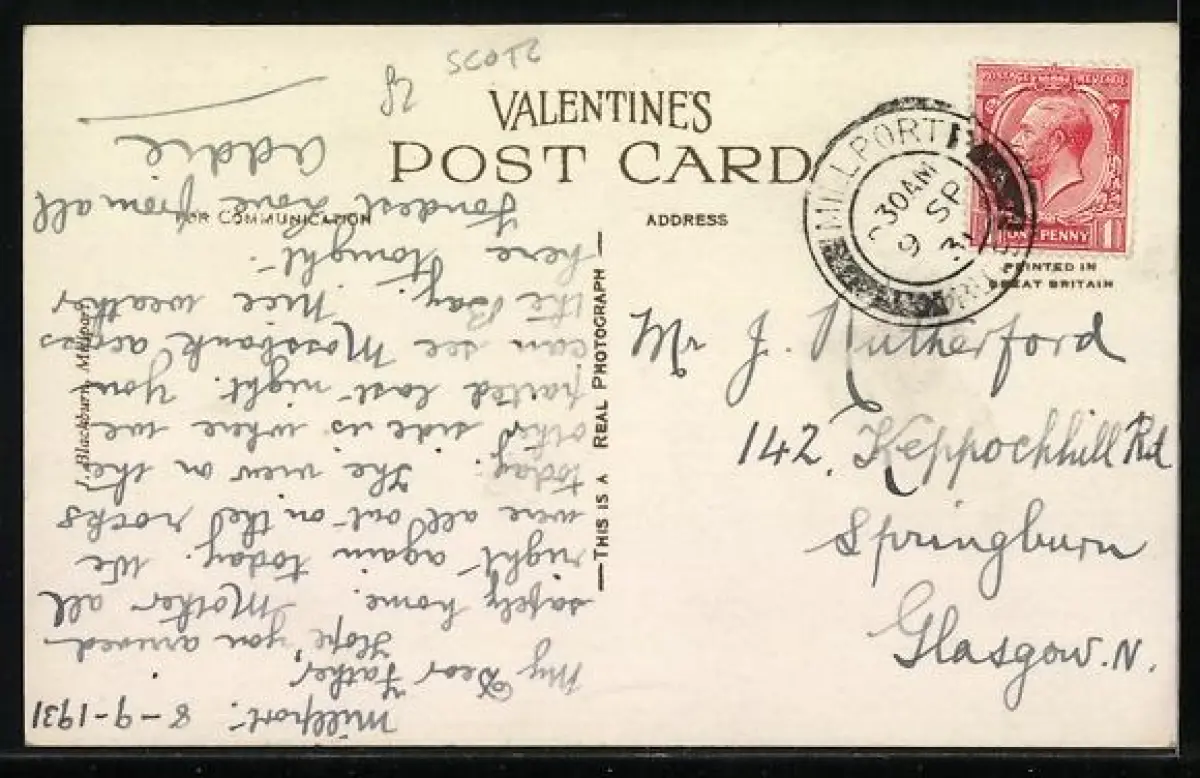 SCOTT
VALENTINE'S
POST CARD
FOR COMMUNICATION
ADDRESS
MILLPORT
30AM
9 SP
31
POSTAGE REVENUE
ONE PENNY
PRINTED IN
GREAT BRITAIN
—THIS IS A REAL PHOTOGRAPH—
J. Blackburn, Millport
Mr J. Rutherford
142, Keppochhill Rd
Springburn
Glasgow. N.
Millport. 8-9-1931
My Dear Father,
Hope you arrived
safely home. Mother all
right again today. We
were all out on the rocks
today. The view on the
other side is where we
parted last night. You
can see Mossbank across
the Bay. Nice weather
here tonight.
Fondest love from all
Addie